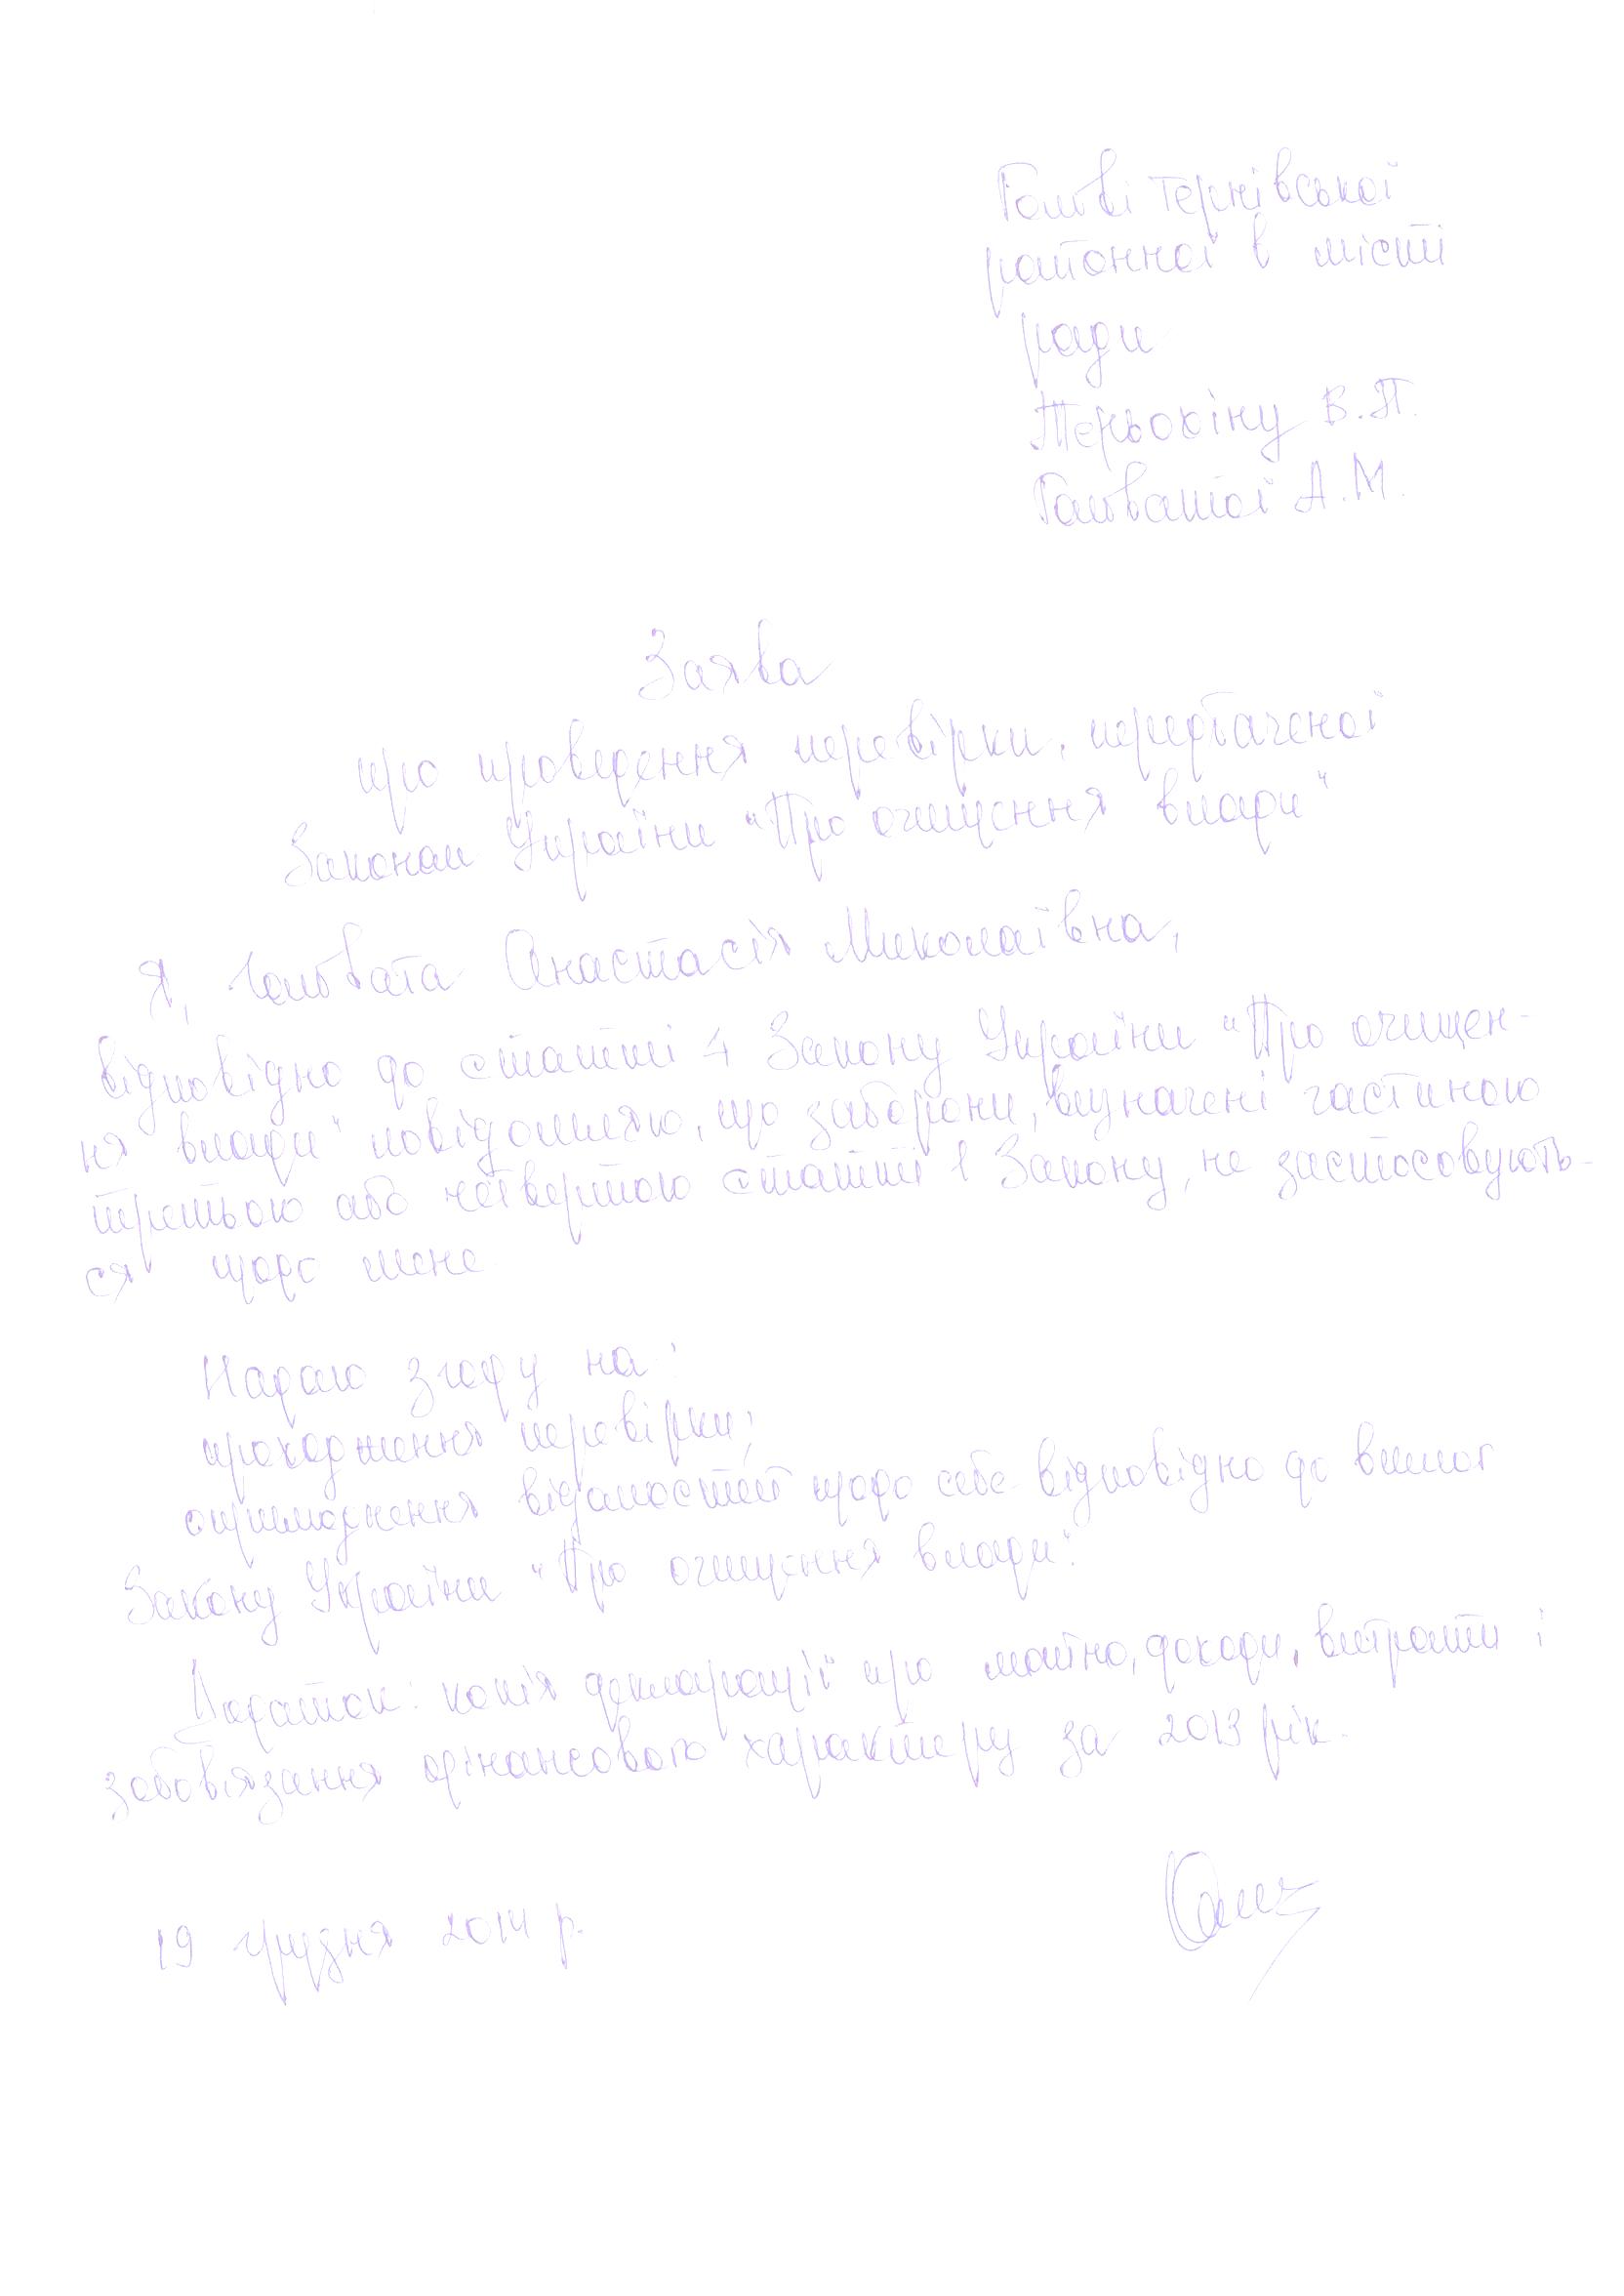 Голові Тернівської
районної в місті
ради
Терьохіну В.П.
Голватої А.М.
Заява
про проведення перевірки, передбаченої
Законом України "Про очищення влади"
Я, Голвата Анастасія Миколаївна,
відповідно до статті 4 Закону України "Про очищен-
ня влади" повідомляю, що заборони, визначені частиною
третьою або четвертою статті 1 Закону, не застосовують-
ся щодо мене
Надаю згоду на:
проходження перевірки;
оприлюднення відомостей щодо себе відповідно до вимог
Закону України "Про очищення влади".
Додаток: копія декларації про майно, доходи, витрати і
зобов'язання фінансового характеру за 2013 рік.
19 грудня 2014 р.